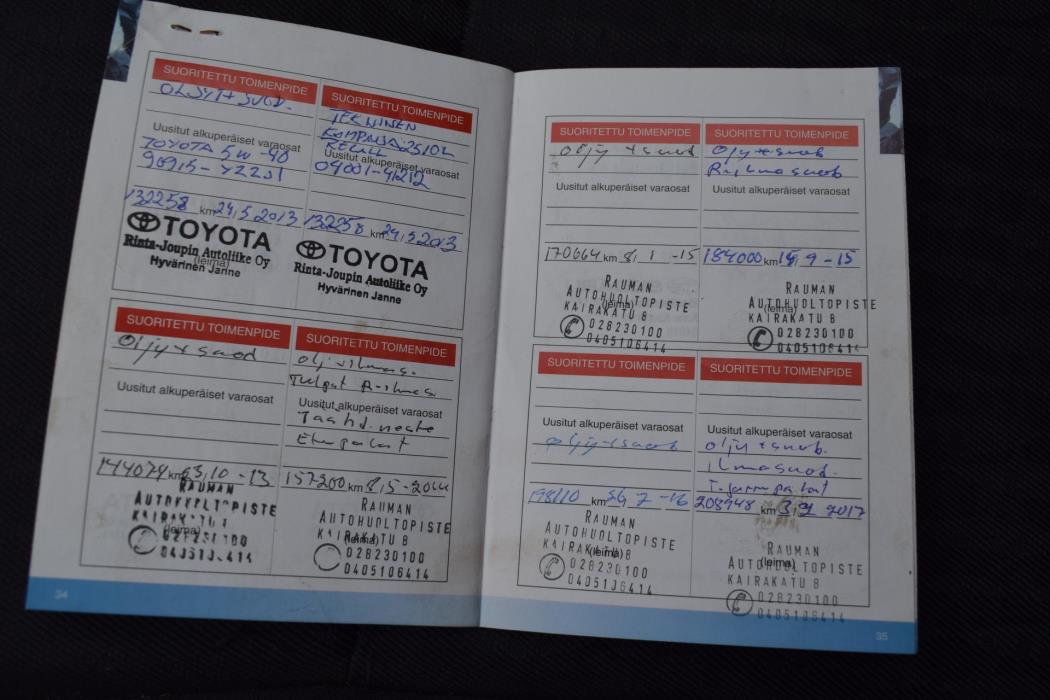 SUORITETTU TOIMENPIDE
Uusitut alkuperäiset varaosat
TOYOTA 5W-40
90915-YZZJ1
132258 km 24,5 2013
TOYOTA
Rinta-Joupin Autoliike Oy
(leima)
Hyvärinen Janne
SUORITETTU TOIMENPIDE
TEKNINEN
KAMPANJA
RECALL
Uusitut alkuperäiset varaosat
04001-41212
132258 km 24,5 2013
TOYOTA
Rinta-Joupin Autoliike Oy
Hyvärinen Janne
SUORITETTU TOIMENPIDE
Öljy + suod
Uusitut alkuperäiset varaosat
144074 km 23,10 -13
RAUMAN
SUORITETTU TOIMENPIDE
Tulpat
Uusitut alkuperäiset varaosat
Jäähd. neste
Etupalat
157200 km 8,5 -
RAUMAN
AUTOHUOLTOPISTE
KAIRAKATU 8
(leima)
028230100
0405106414
34
SUORITETTU TOIMENPIDE
Öljy + suod
Uusitut alkuperäiset varaosat
170664 km 8, 1 -15
RAUMAN
AUTOHUOLTOPISTE
(leima)
KAIRAKATU 8
028230100
0405106414
SUORITETTU TOIMENPIDE
Öljy + suod
Uusitut alkuperäiset varaosat
184000 km 9 -15
RAUMAN
AUTOHUOLTOPISTE
(leima)
KAIRAKATU 8
028230100
0405106414
SUORITETTU TOIMENPIDE
Uusitut alkuperäiset varaosat
öljy + suod
km 7 -16
RAUMAN
AUTOHUOLTOPISTE
KAIRAKATU 8
(leima)
028230100
0405106414
SUORITETTU TOIMENPIDE
Uusitut alkuperäiset varaosat
öljy + suod.
ilmasuod.
T. jarrupalat
208948 km 2017
RAUMAN
(leima)
AUTOHUOLTOPISTE
KAIRAKATU 8
028230100
0405106414
35